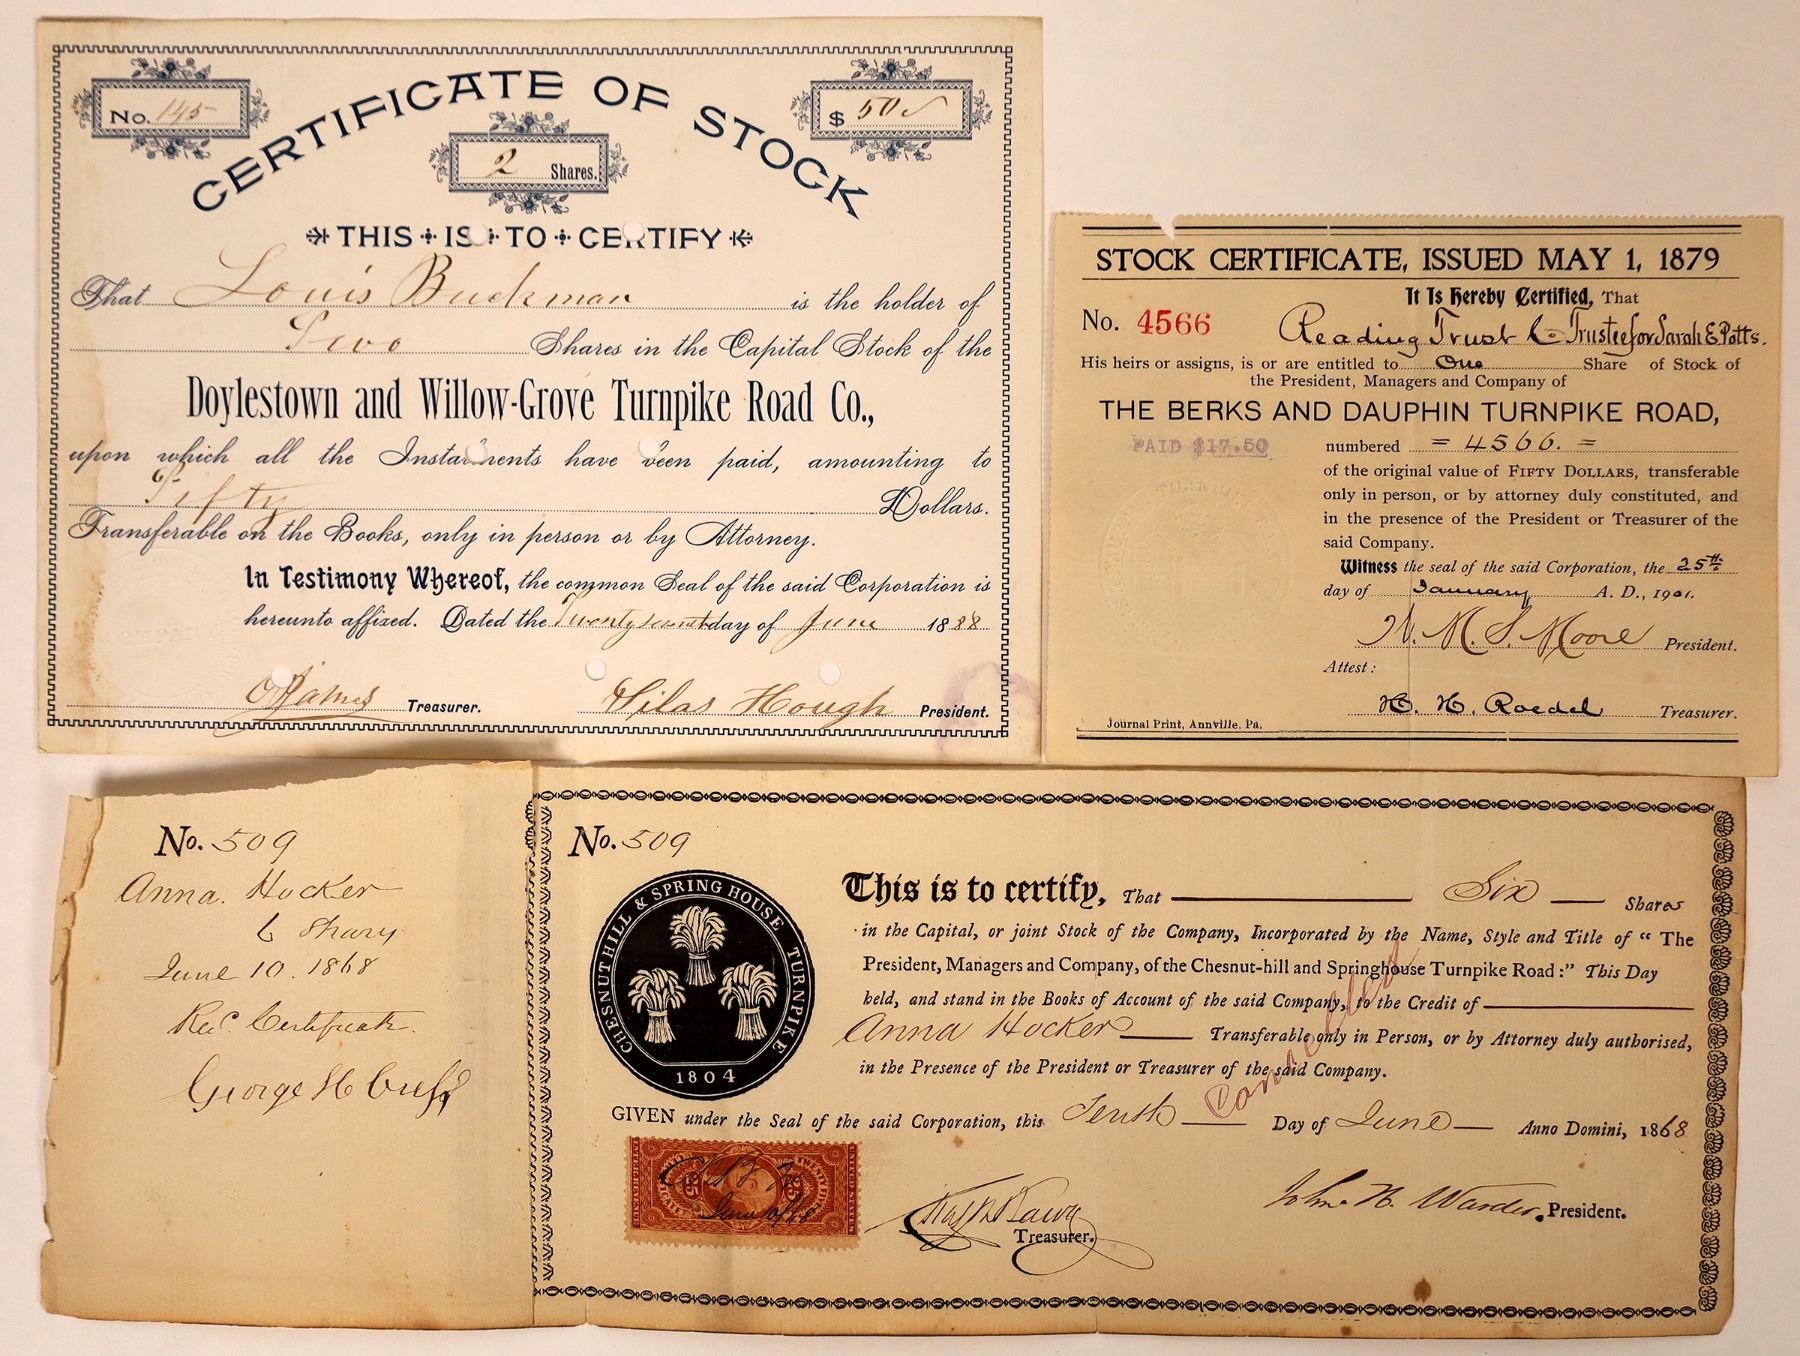 CERTIFICATE OF STOCK
No. 145
2 Shares.
$ 50
THIS IS TO CERTIFY
That Louis Buckman is the holder of
Two Shares in the Capital Stock of the
Doylestown and Willow-Grove Turnpike Road Co.,
upon which all the Instalments have been paid, amounting to
Fifty Dollars.
Transferable on the Books, only in person or by Attorney.
In Testimony Whereof, the common Seal of the said Corporation is
hereunto affixed. Dated the day of June 1888
Treasurer. Silas Hough President.
STOCK CERTIFICATE, ISSUED MAY 1, 1879
It Is Hereby Certified, That
No. 4566 Reading Trust Co Trustee for Sarah E. Potts.
His heirs or assigns, is or are entitled to One Share of Stock of
the President, Managers and Company of
THE BERKS AND DAUPHIN TURNPIKE ROAD,
PAID $17.50
numbered = 4566. =
of the original value of FIFTY DOLLARS, transferable
only in person, or by attorney duly constituted, and
in the presence of the President or Treasurer of the
said Company.
Witness the seal of the said Corporation, the 25th
day of January A. D., 1901.
W. M. S. Moore President.
Attest:
H. H. Roedel Treasurer.
Journal Print, Annville, Pa.
No. 509
Anna Hocker
6 Shares
June 10. 1868
Rec. Certificate.
George H
No. 509
CHESNUTHILL & SPRING HOUSE TURNPIKE
1804
This is to certify, That Six Shares
in the Capital, or joint Stock of the Company, Incorporated by the Name, Style and Title of “The
President, Managers and Company, of the Chesnut-hill and Springhouse Turnpike Road:” This Day
held, and stand in the Books of Account of the said Company, to the Credit of
Anna Hocker Transferable only in Person, or by Attorney duly authorised,
in the Presence of the President or Treasurer of the said Company.
Cancelled
GIVEN under the Seal of said Corporation, this Tenth Day of June Anno Domini, 1868
25 25
June 10/68
Treasurer.
John H. Warder. President.